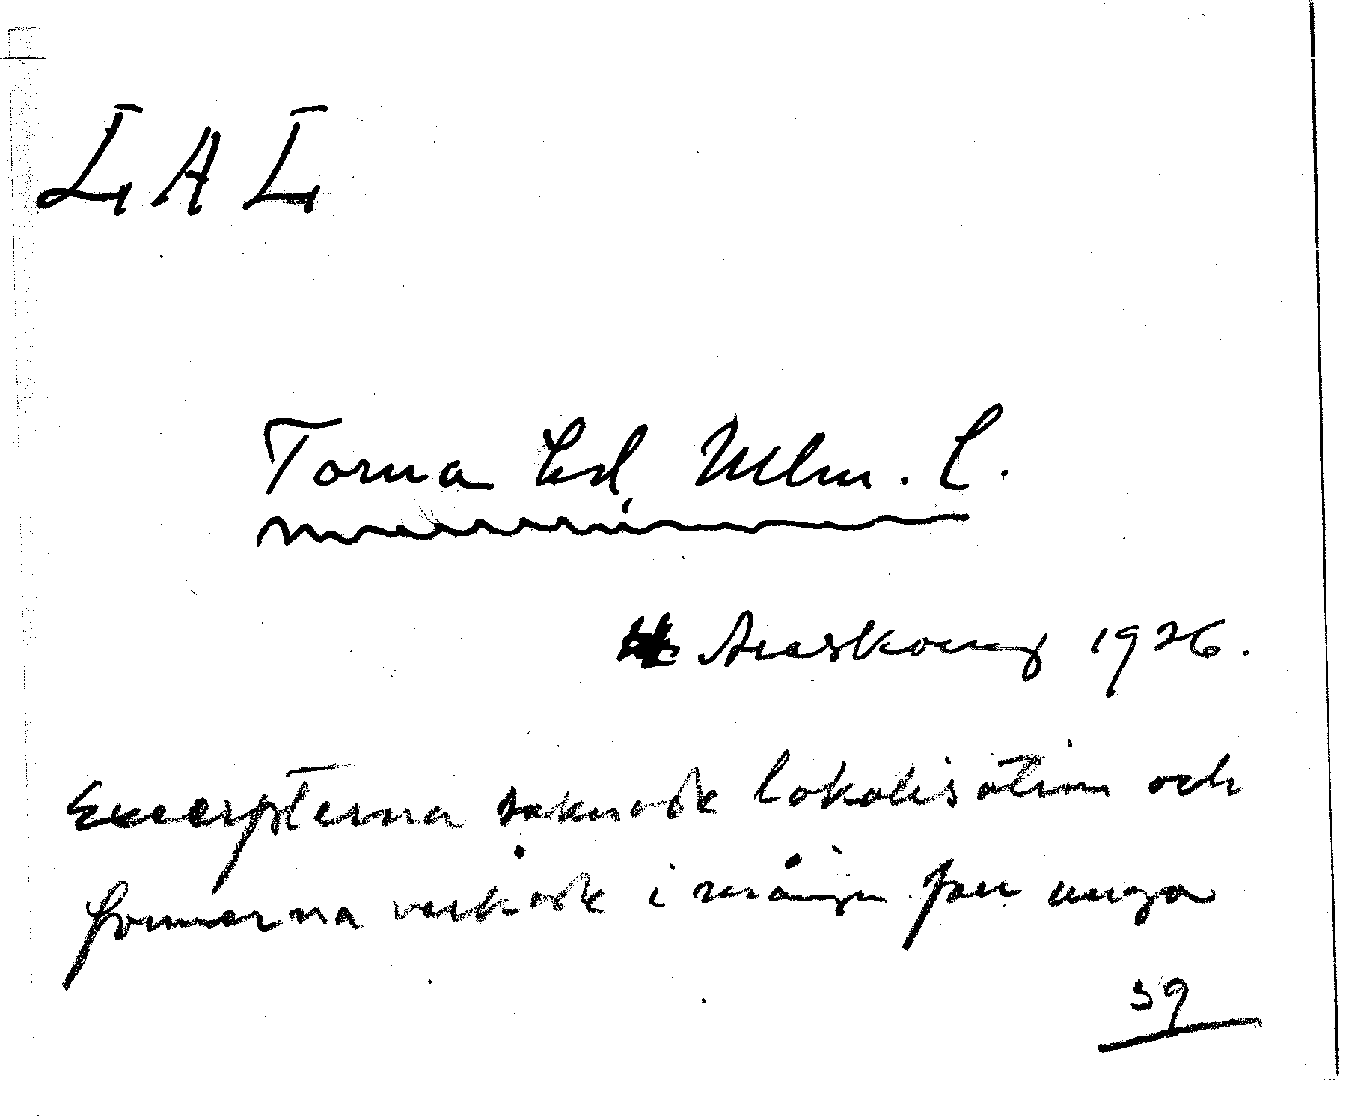 LAL
Torna hd, Mlm. l.
Araskoug 1926.
Excerpterna saknade lokalisation och
formerna verkade i många fall unga
39